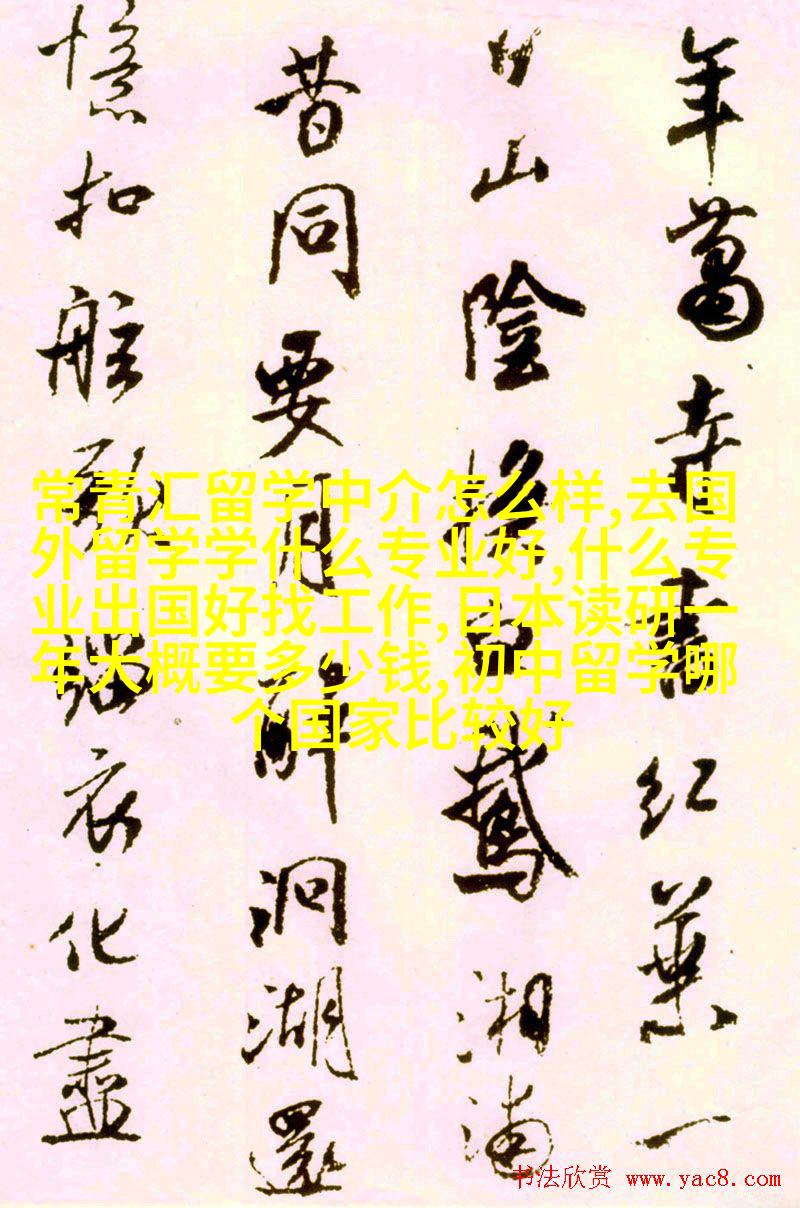 年蕭寺書紅葉一
日山陰換白鵝湘浦
昔同要月醉洞湖還
憶扣舷歌緇衣化盡
常青汇留学中介怎么样,去国
外留学学什么专业好,什么专
业出国好找工作,日本读研一
年大概要多少钱,初中留学哪
个国家比较好
书法欣赏 www.yac8.com